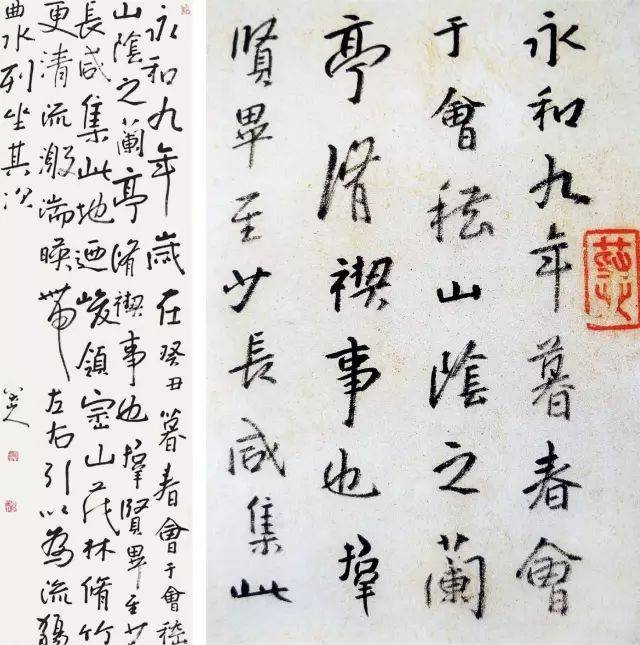 永和九年暮春會
于會嵇山陰之蘭
亭脩禊事也羣
賢畢至少長咸集此
永和九年歲在癸丑暮春會于會嵇
山陰之蘭亭脩禊事也羣賢畢至少
長咸集此地迺峻領崇山茂林脩竹
更清流激湍暎帶左右引以為流觴
曲水列坐其次
八大山人